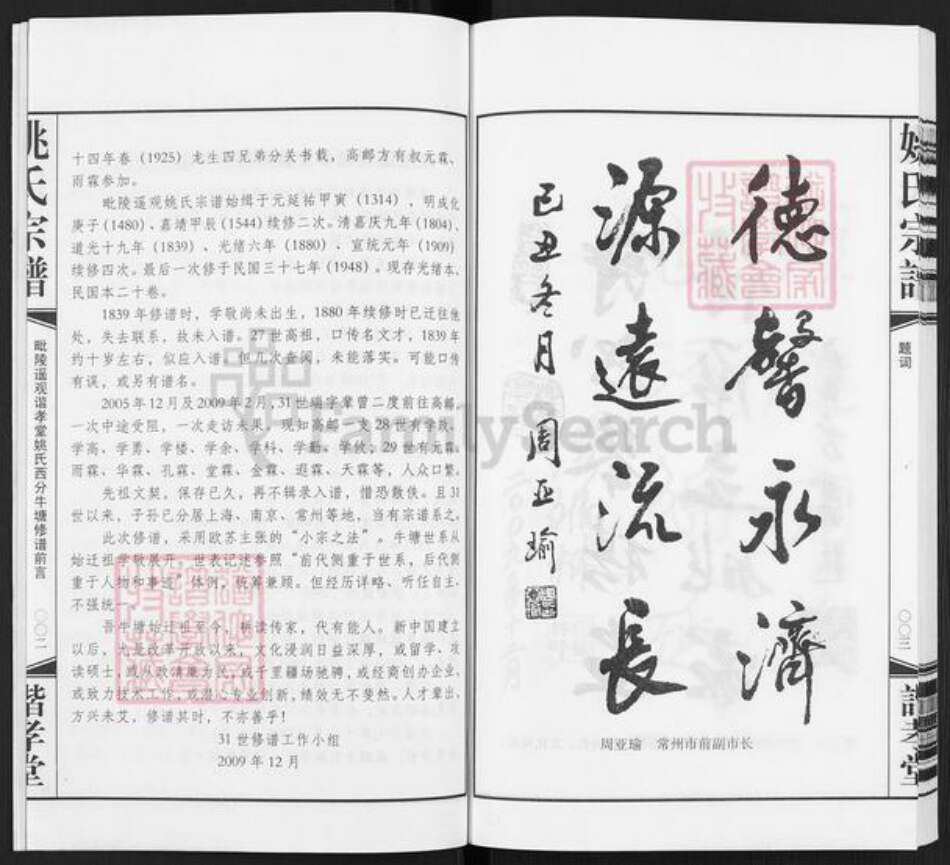 姚氏宗譜
毗陵遥观谐孝堂姚氏西分牛塘修谱前言
〇〇二
谐孝堂
十四年春（1925）龙生四兄弟分关书载，高邮方有叔元霖、
雨霖参加。
毗陵遥观姚氏宗谱始缉于元延祐甲寅（1314），明成化
庚子（1480）、嘉靖甲辰（1544）续修二次。清嘉庆九年（1804）、
道光十九年（1839）、光绪六年（1880）、宣统元年（1909）
续修四次。最后一次修于民国三十七年（1948）。现存光绪本、
民国本二十卷。
1839年修谱时，学敬尚未出生，1880年续修时已迁往他
处，失去联系，故未入谱。27世高祖，口传名文才，1839年
约十岁左右，似应入谱。但几次查阅，未能落实。可能口传
有误，或另有谱名。
2005年12月及2009年2月，31世瑞字辈曾二度前往高邮，
一次中途受阻，一次走访未果。现知高邮一支28世有学敖、
学高、学勇、学楼、学余、学科、学勤、学攸；29世有元霖、
雨霖、华霖、孔霖、堂霖、金霖、遐霖、天霖等，人众口繁。
先祖文契，保存已久，再不辑录入谱，惜恐散佚。且31
世以来，子孙已分居上海、南京、常州等地，当有宗谱系之。
此次修谱，采用欧苏主张的“小宗之法”。牛塘世系从
始迁祖学敬展开，世表记述参照“前代侧重于世系，后代侧
重于人物和事迹”体例，统筹兼顾。但经历详略、听任自主，
不强统一。
吾牛塘始迁祖至今，耕读传家，代有能人。新中国建立
以后，尤是改革开放以来，文化浸润日益深厚，或留学、攻
读硕士，或从政清廉为民，或千里疆场驰骋，或经商创办企业，
或致力技术工作，或潜心专业创新，绩效无不斐然。人才辈出，
方兴未艾，修谱其时，不亦善乎！
31世修谱工作小组
2009年12月
德馨永濟
源遠流長
己丑冬月 周亚瑜
周亚瑜 常州市前副市长
姚氏宗譜
题词
〇〇三
谐孝堂
FamilySearch